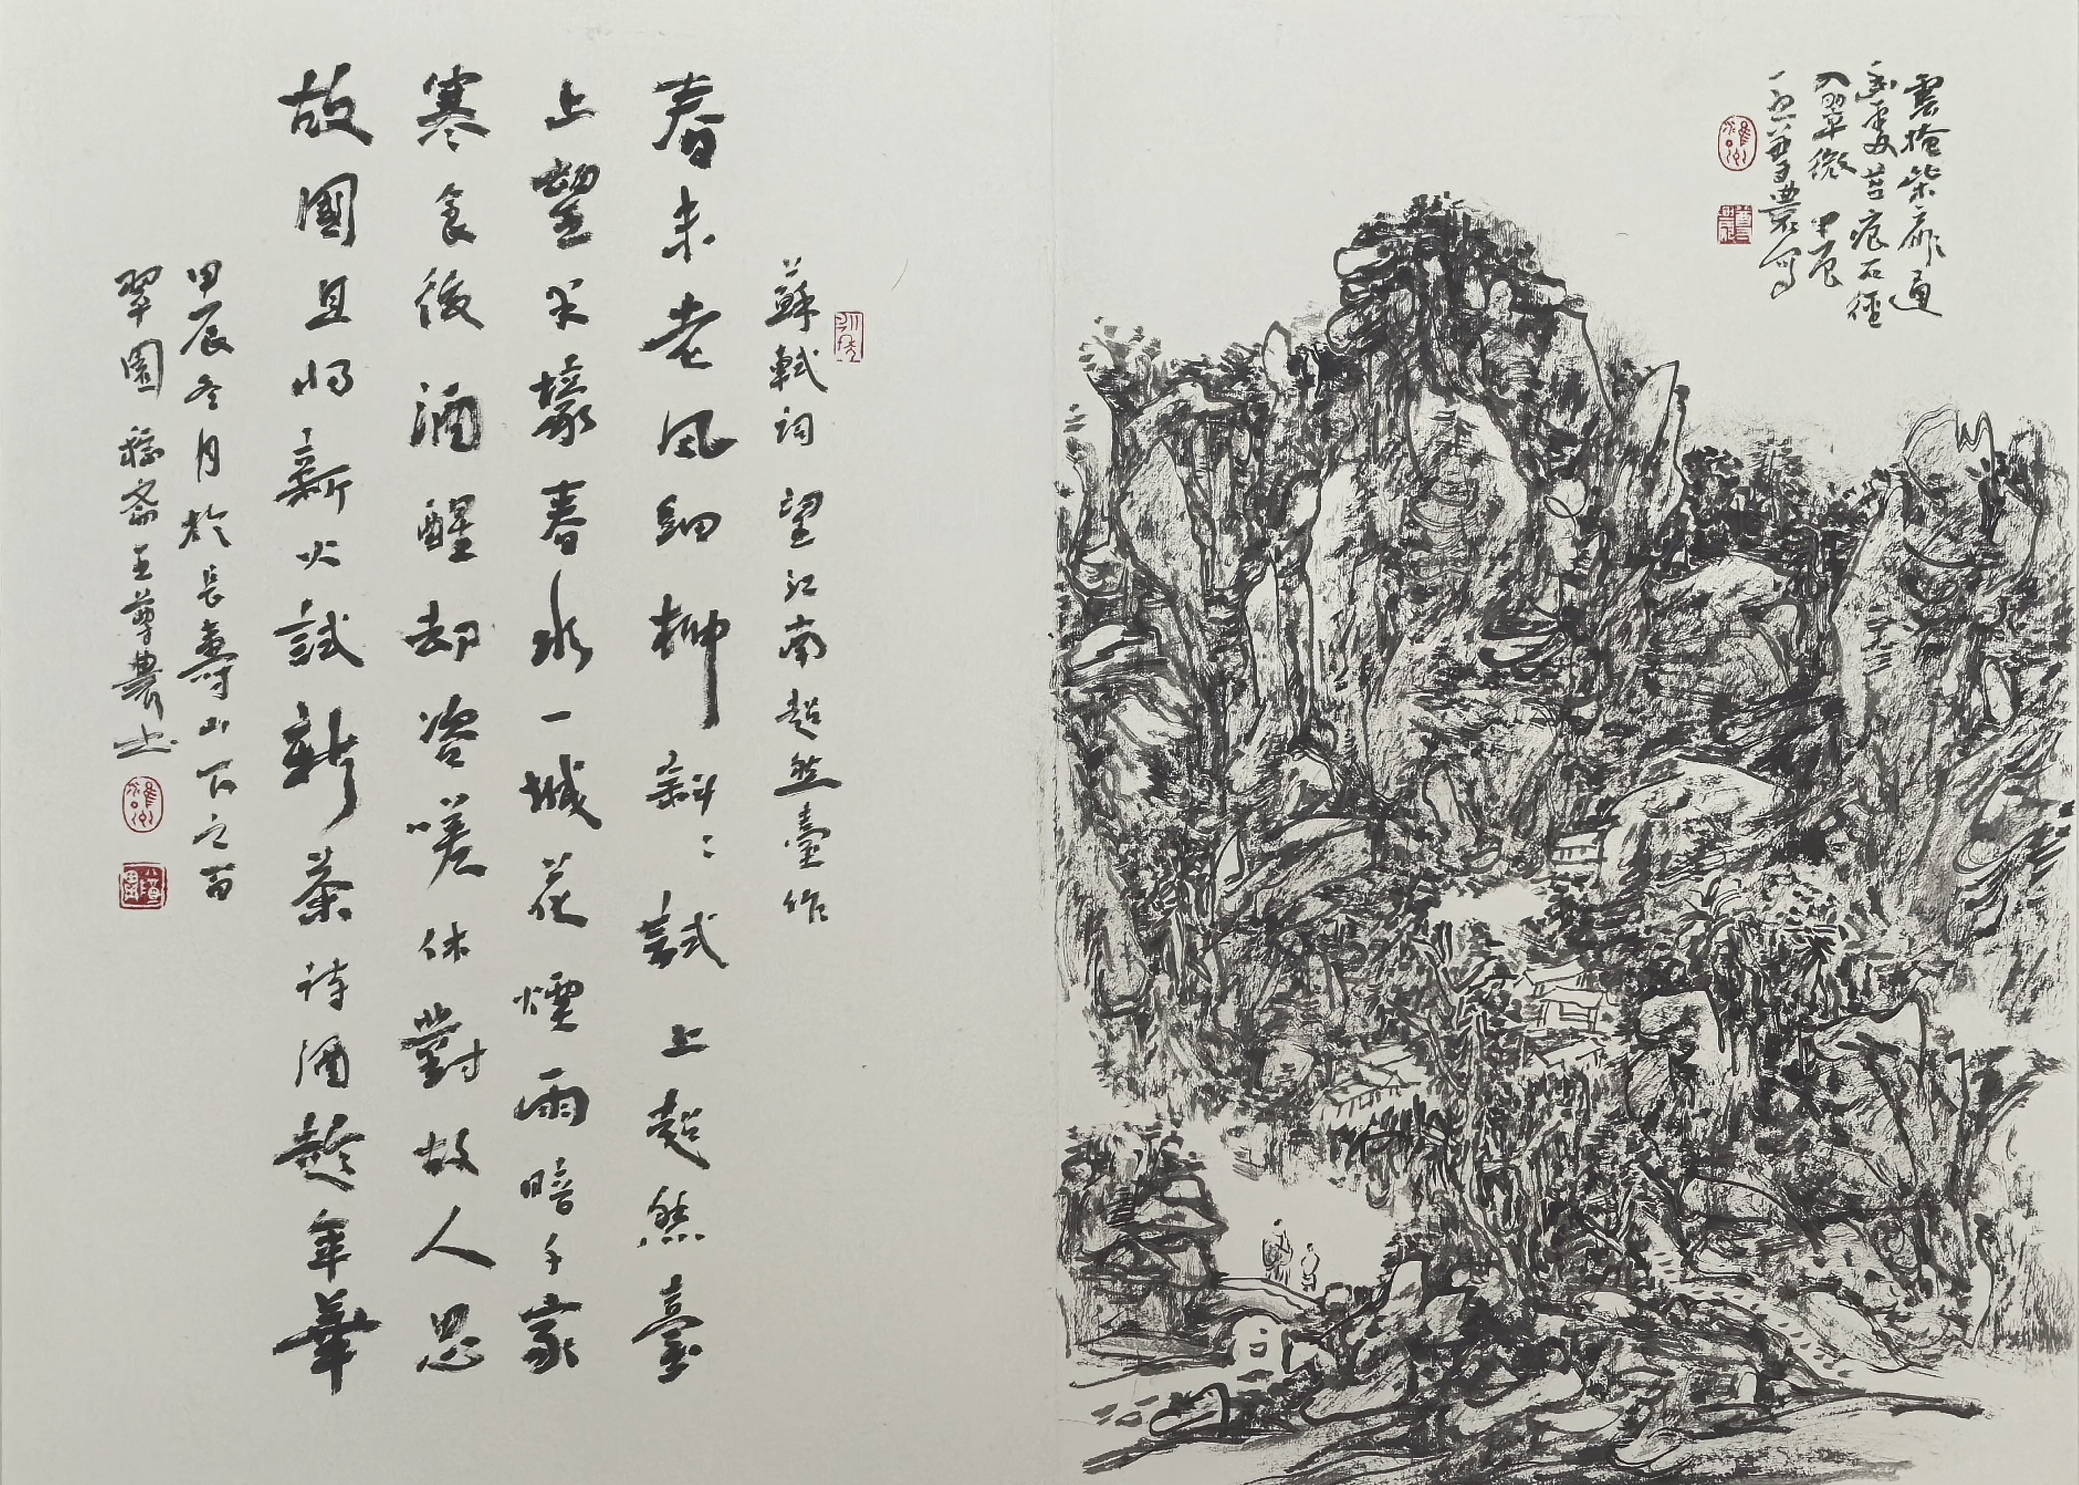 雲掩柴扉通
幽處苔痕石徑
入翠微 甲辰
王尊農寫
蘇軾詞 望江南 超然臺作
春未老風細柳斜〻試上超然臺
上望半壕春水一城花煙雨暗千家
寒食後酒醒却咨嗟休對故人思
故國且將新火試新茶詩酒趁年華
甲辰冬月於長壽山下之百
翠園 齋王尊農書